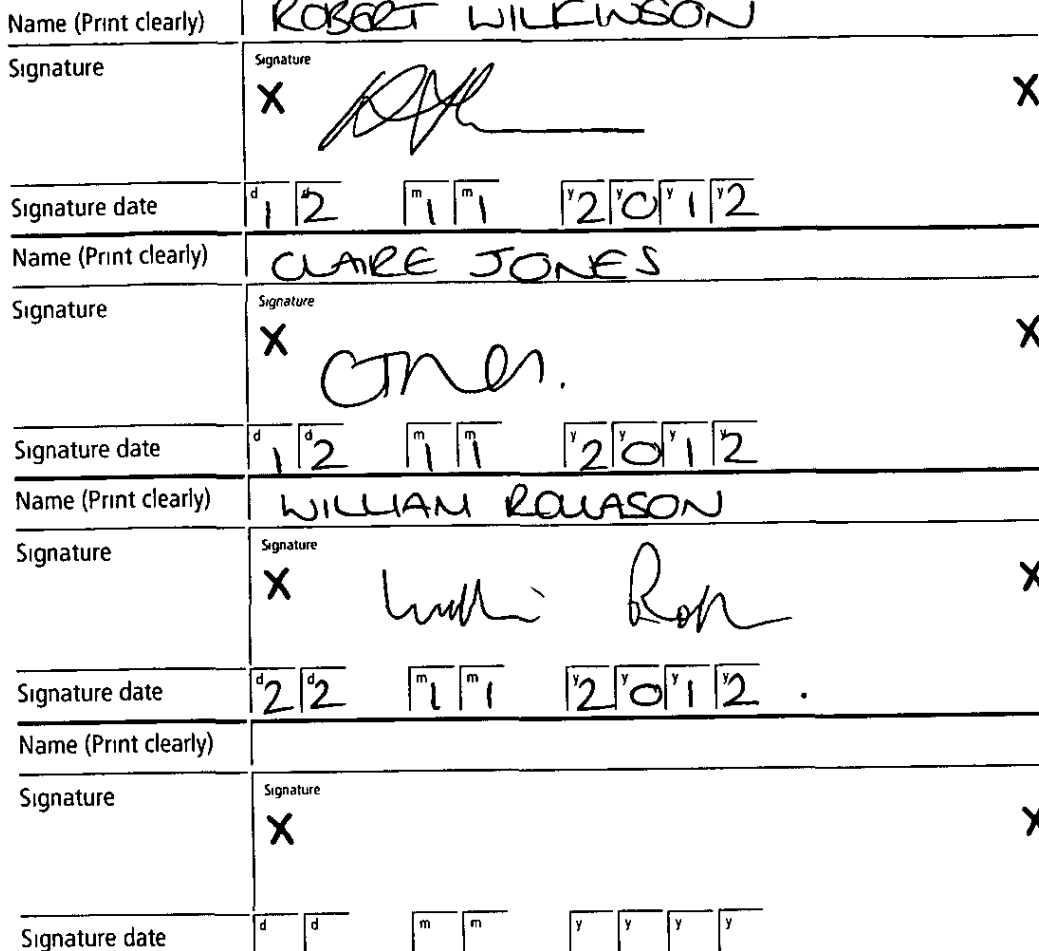 Name (Print clearly) ROBERT WILKINSON
Signature Signature
X X
Signature date d1 d2 m1 m1 y2 y0 y1 y2
Name (Print clearly) CLAIRE JONES
Signature Signature
X X
Signature date d1 d2 m1 m1 y2 y0 y1 y2
Name (Print clearly) WILLIAM ROLLASON
Signature Signature
X X
Signature date d2 d2 m1 m1 y2 y0 y1 y2 .
Name (Print clearly)
Signature Signature
X X
Signature date d d m m y y y y